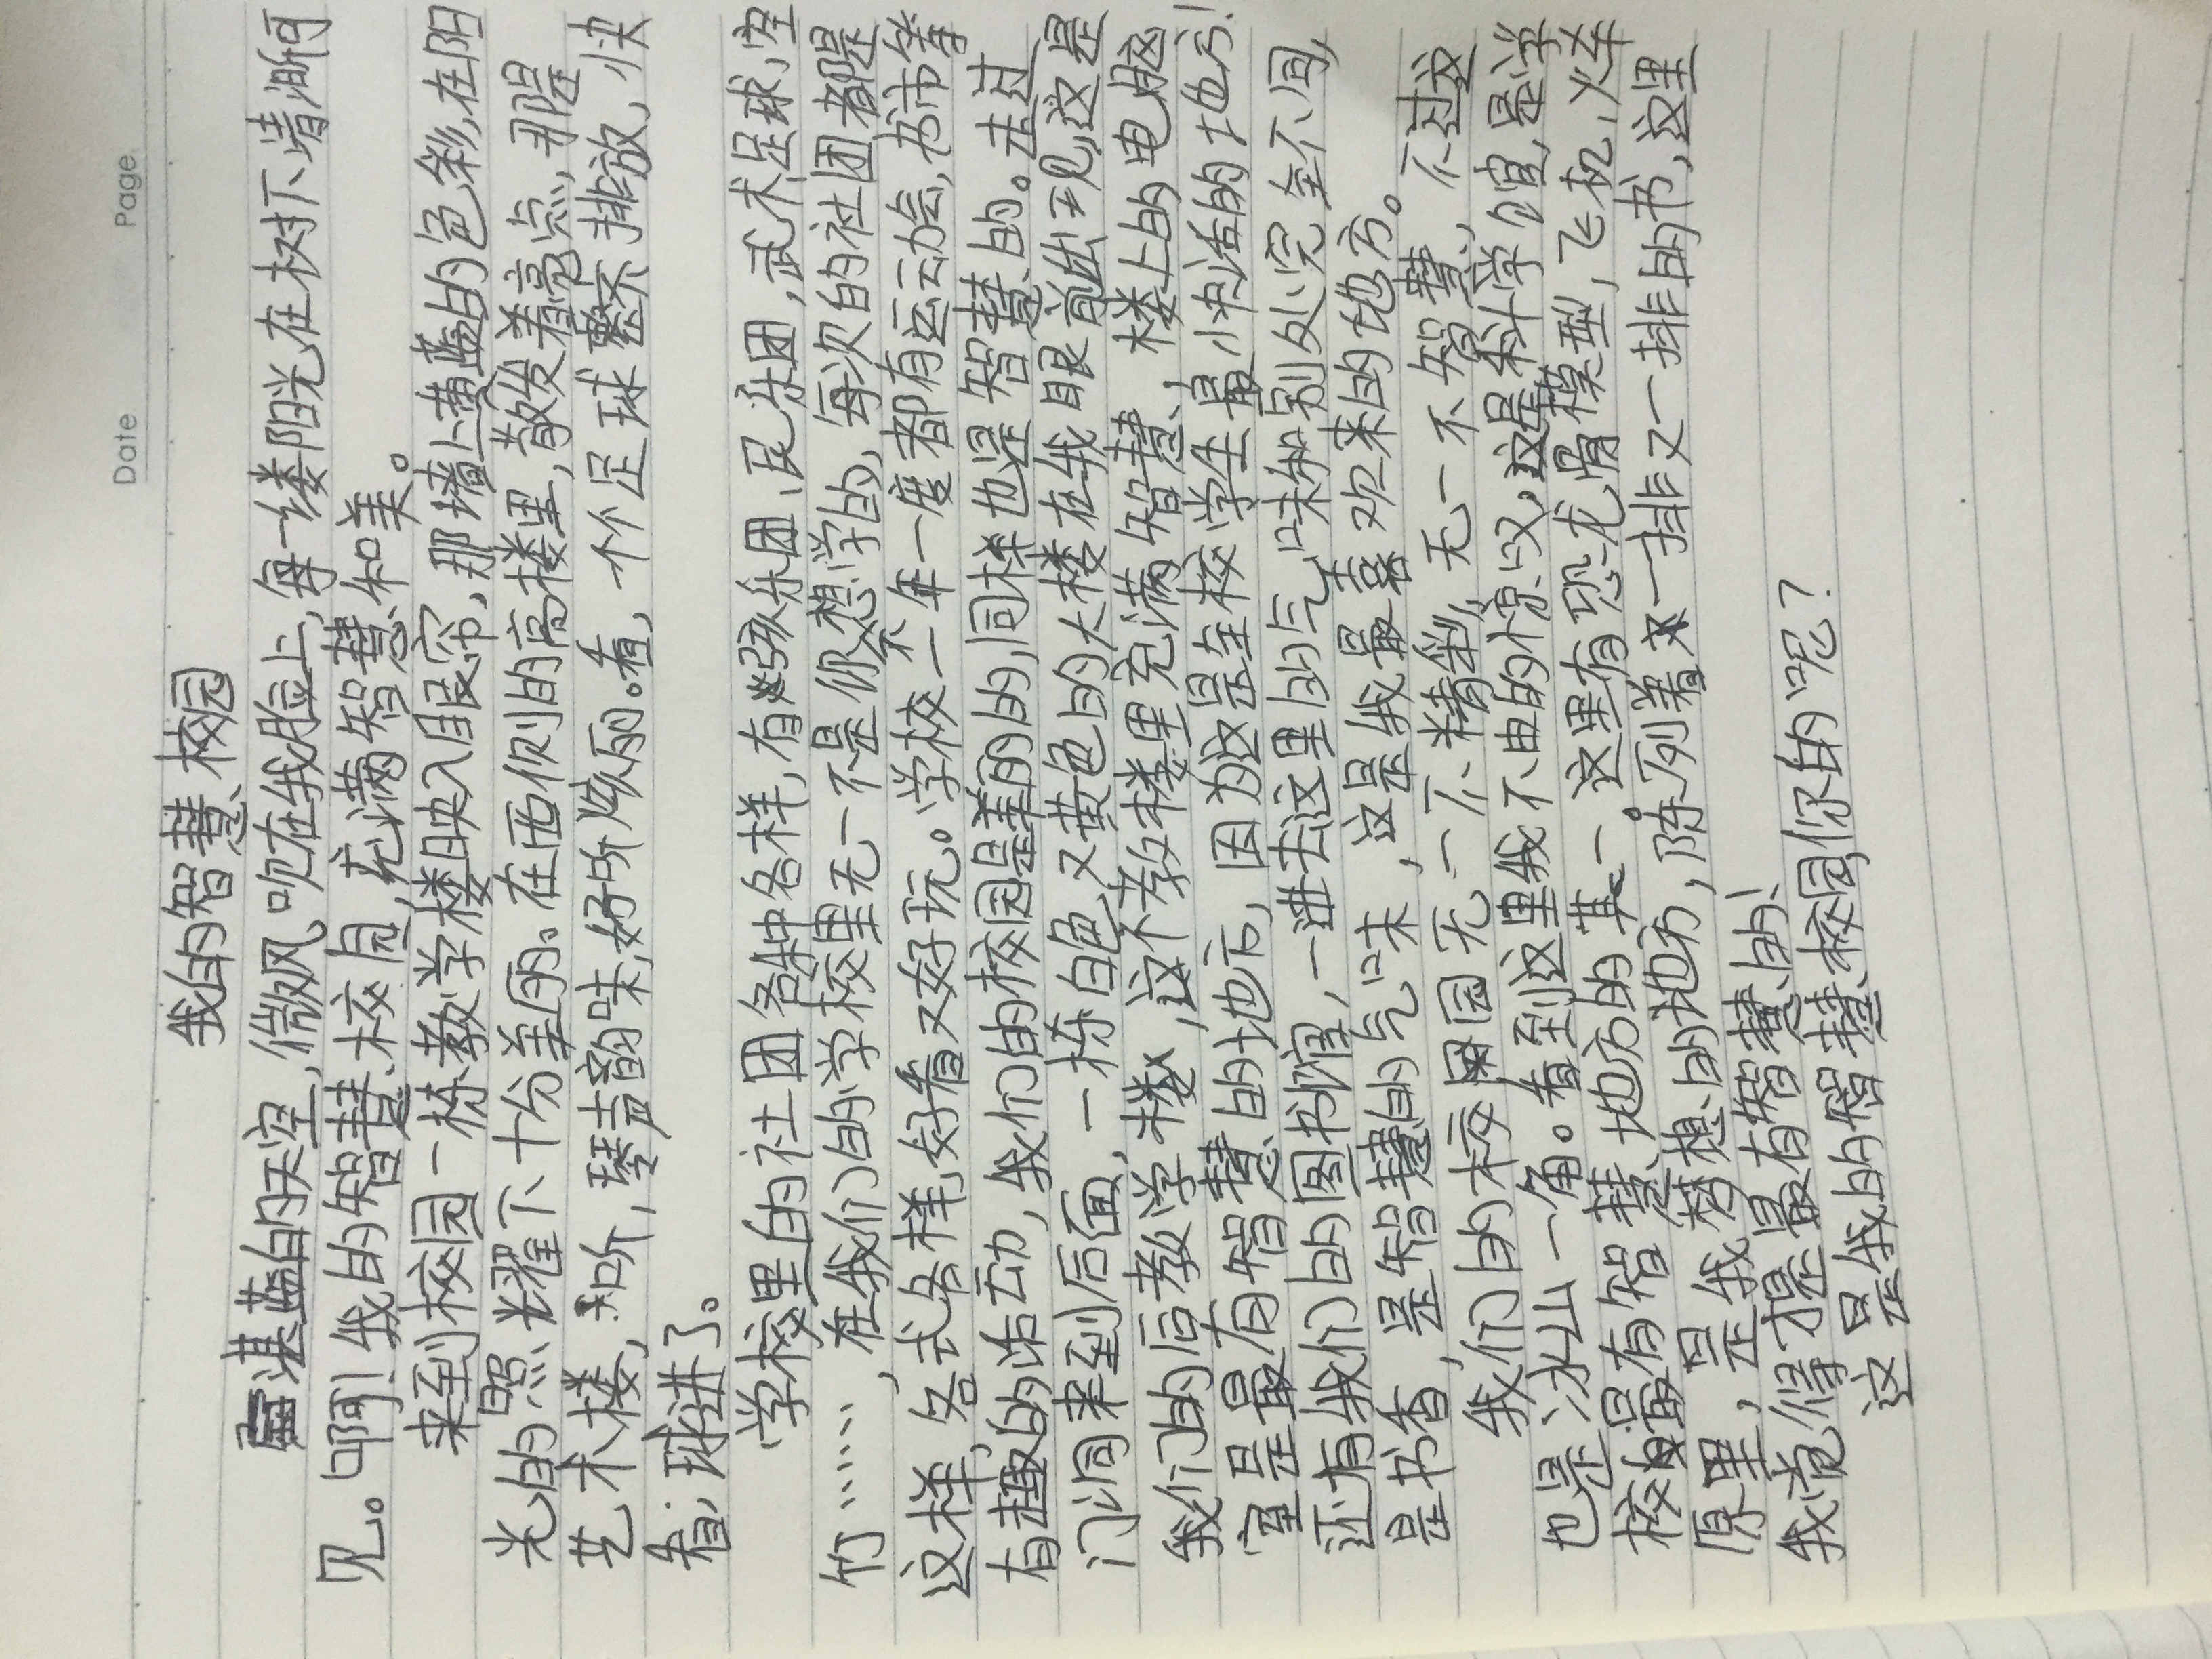 Date
Page
我的智慧校园
湛蓝的天空,微风吹在我脸上,每一缕阳光在树下清晰可
见。啊!我的智慧校园,充满智慧和美。
来到校园一栋教学楼映入眼帘,那墙上黄蓝的色彩,在阳
光的照耀下十分美丽。在西侧的高楼里,散发着亮点,那是
艺术楼,听,琴声韵味,好听炫丽。看,一个个足球整齐排放,快
看;球进了。
学校里的社团各种各样,有弦乐团、民乐团,武术,足球,空
竹……,在我们的学校里无一不是你想学的,每次的社团都是
这样,各式各样,好看又好玩。学校一年一度都有运动会,书市等
有趣的活动,我们的校园是美的,同样也是智慧的。走过
门洞来到后面,一栋白色又黄色的大楼在我眼前出现,这是
我们的后教学楼,这个教楼里充满智慧,楼上的电脑
室是最有智慧的地方,因为这是全校学生最少来的地方!
还有我们的图书馆,一进去这里的气味和别处完全不同,
是书香,是智慧的气味,这是我最喜欢来的地方。
我们的校园无一不精彩,无一不智慧,不过这
也是冰山一角。看到这里我不由的惊叹。这是科学馆,是学
校最有智慧地方的其一。这里有恐龙骨模型,飞机,火车
原理,是我梦想的地方,陈列着一排又一排的书,这里
我觉得才是最有智慧的!
这是我的智慧校园,你的呢?